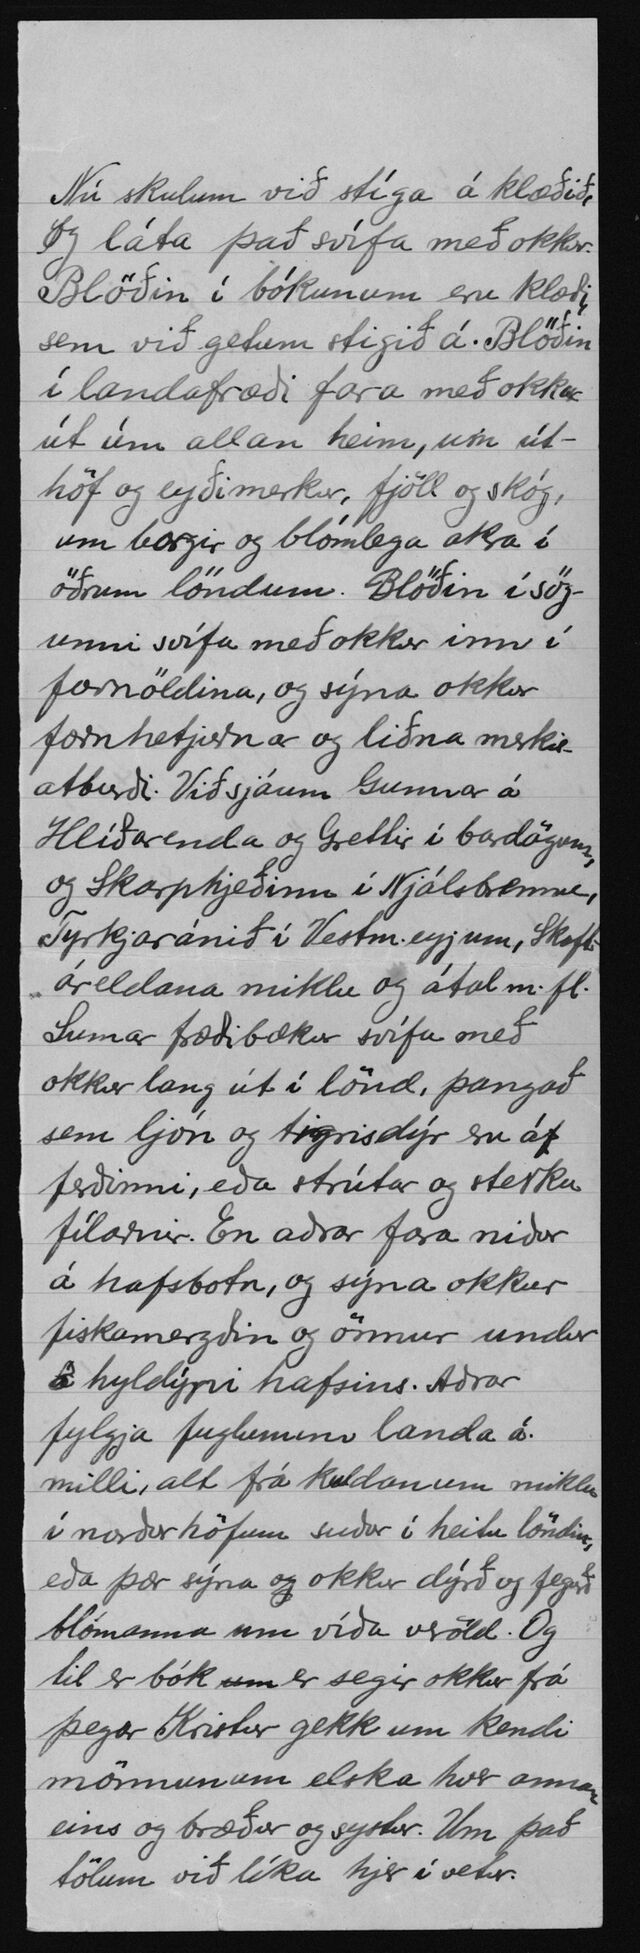 Nú skulum við stíga á klæðið,
Og láta það svífa með okkur.
Blöðin í bókunum eru klæði,
sem við getum stigið á. Blöðin
í landafræði fara með okkur
út úm allan heim, um út-
höf og eyðimerkur, fjöll og skóg,
um borgir og blómlega akra í
öðrum löndum. Blöðin í sög-
unni svífa með okkur inn í
fornöldina, og sýna okkur
fornhetjurnar og liðna merkis-
atburði. Við sjáum Gunnar á
Hlíðarenda og Grettir í bardögum,
og Skarphjeðinn í Njálsbrennu,
Tyrkjaránið í Vestm.eyjum, Skaft-
áreldana miklu og átal m. fl.
Sumar fræðibækur svífa með
okkur lang út í lönd, þangað
sem ljón og tigrisdýr eru á
ferðinni, eða strútar og sterku
fílarnir. En aðrar fara niður
á hafsbotn, og sýna okkur
fiskamergðin og önnur undur
á hyldýpi hafsins. Aðrar
fylgja fuglunum landa á
milli, alt frá kuldanum miklu
í norðurhöfum suður í heitu löndin,
eða þær sýna og okkur dýrð og fegurð
blómanna um víða veröld. Og
til er bók um er segir okkur frá
þegar Kristur gekk um kendi
mönnunum elska hver annan
eins og bræður og systur. Um það
tölum við líka hjer í vetur.